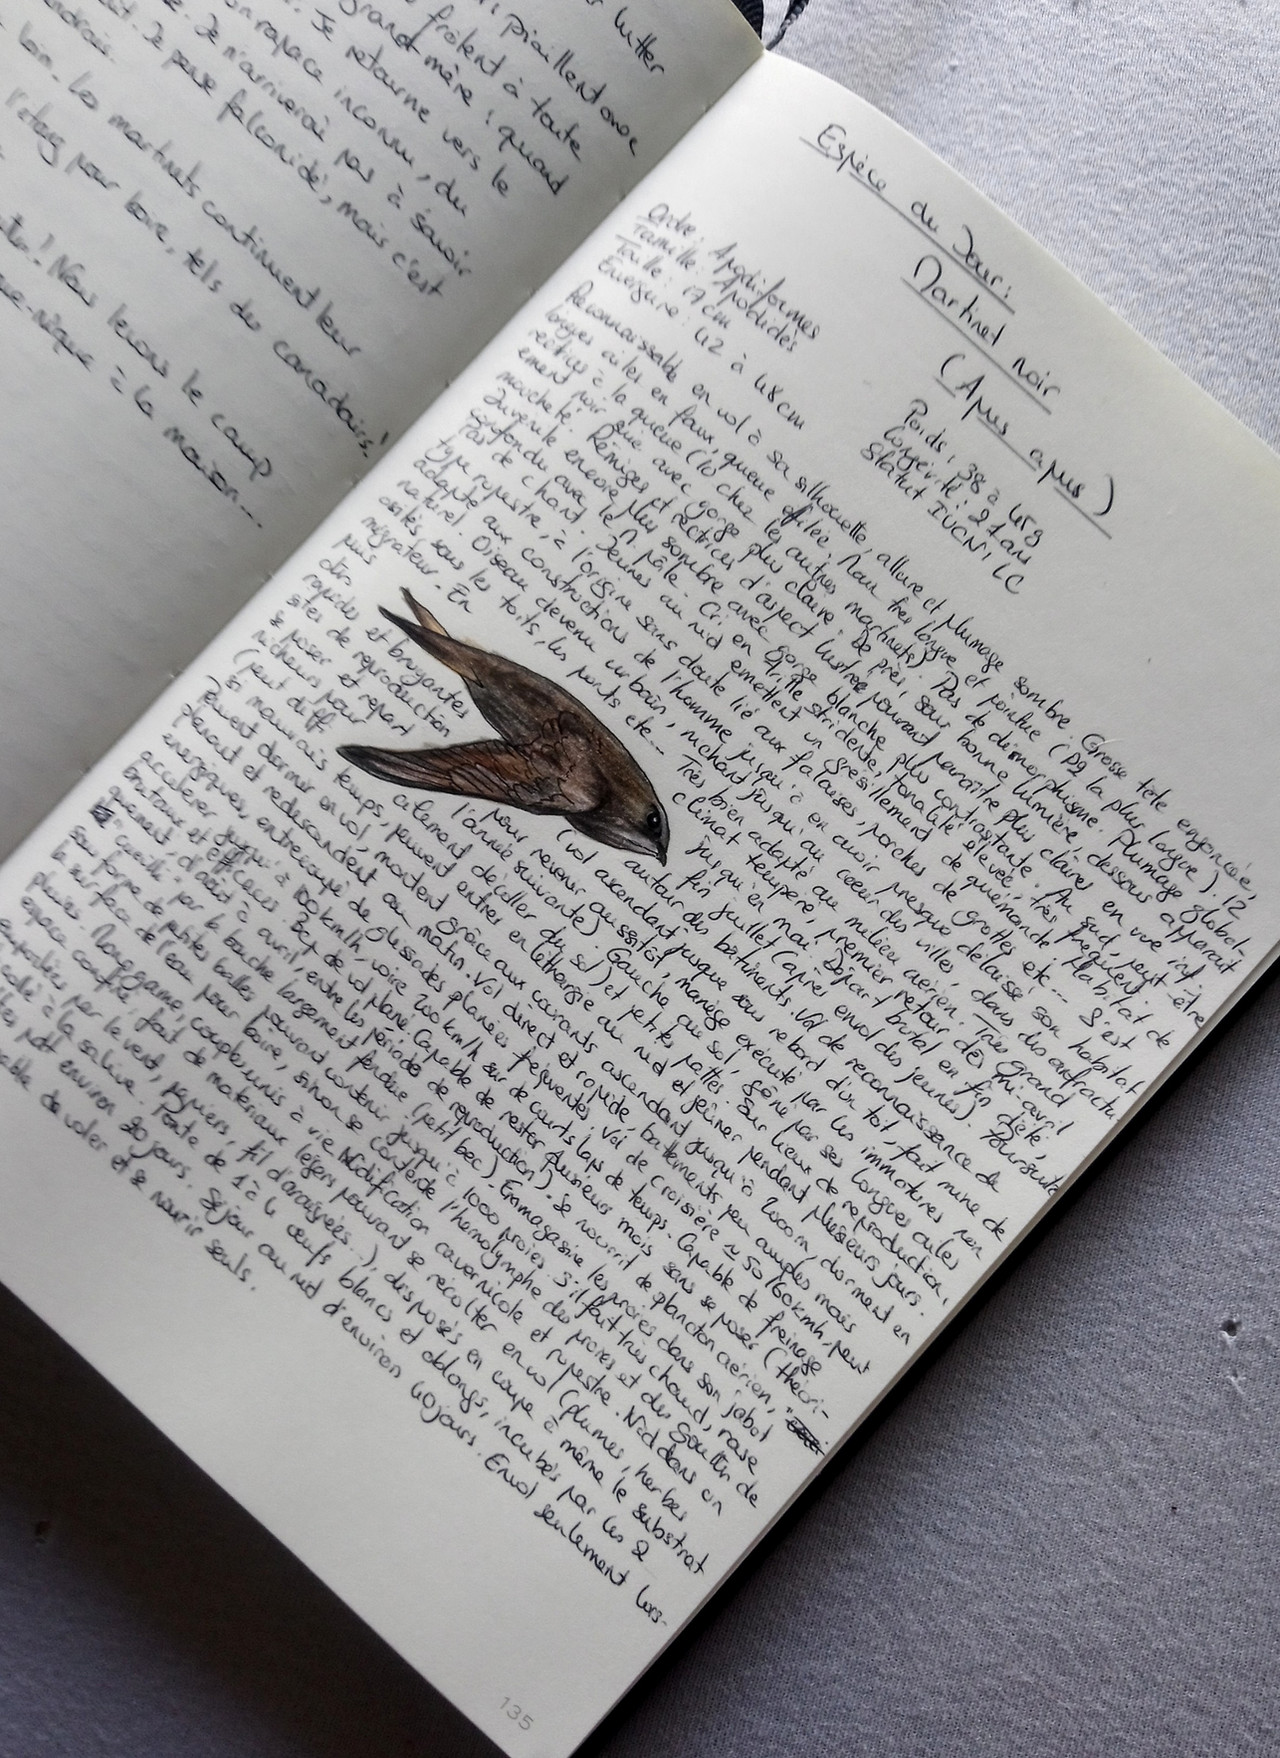 er lutter
piaillent once
frôlent à toute
grand-mère : quand
. Je retourne vers le
on rapace inconnu, du
. Je n'arriverai pas à savoir
. Je pense falconidé, mais c'est
loin. Les martinets continuent leur
pour boire, tels des canadairs!
! Nous levons le camp
que-nique à la maison...
Espèce du Jour :
Martinet noir
(Apus apus)
Ordre : Apodiformes
Famille : Apodidés
Taille : 17 cm
Envergure : 42 à 48 cm
Poids : 38 à 45g
Longévité : 21 ans
Statut IUCN : LC
Reconnaissable en vol à sa silhouette, allure et plumage sombre. Grosse tête engoncée,
longues ailes en faux, queue effilée. Main très longue et pointue (P9 la plus longue). 12
rectrices à la queue (10 chez les autres martinets). Pas de dimorphisme. Plumage global-
ement noir avec gorge plus claire. De près, sous bonne lumière, dessous apparait
moucheté. Rémiges et rectrices d'aspect lustré pouvant paraître plus claires en vue inf.
Juvénile encore plus sombre avec gorge blanche plus contrastante. Au sud, peut être
confondu avec le M. pâle. Cri en trille strident, tonalité élevée, très fréquent.
Pas de chant. Jeunes au nid émettent un grésillement de quémande. Habitat de
type rupestre, à l'origine sans doute lié aux falaises, porches de grottes etc... S'est
adapté aux constructions de l'homme jusqu'à en avoir presque délaissé son habitat
naturel. Oiseau devenu urbain, nichant jusqu'au cœur des villes, dans des anfractu-
osités, sous les toits, les ponts etc... Très bien adapté au milieu aérien. Très grand
migrateur. En climat tempéré, premier retour dès mi-avril
puis jusqu'en mai. Départ brutal en fin d'été,
dès fin juillet (après envol des jeunes). Poursuites
rapides et bruyantes autour des bâtiments. Vol de reconnaissance de
sites de reproduction (vol ascendant jusque sous rebord d'un toit, fait mine de
se poser et repart pour revenir aussitôt, manège exécuté par les immatures non
nicheurs pour l'année suivante). Gauche au sol, gêné par ses longues ailes
(peut difficilement décoller du sol) et petites pattes. Sur lieux de reproduction,
si mauvais temps, peuvent entrer en léthargie au nid et jeûner pendant plusieurs jours.
Peuvent dormir en vol, montent grâce aux courants ascendants jusqu'à 2000m, dorment en
planant et redescendent au matin. Vol direct et rapide, battements peu amples mais
énergiques, entrecoupé de glissades planées fréquentes. Vol de croisière ≈ 50/60 km/h, peut
accélérer jusqu'à 100km/h, voire 200km/h sur de courts laps de temps. Capable de freinage
brutaux et efficaces. Bcp de vol plané. Capable de rester plusieurs mois sans se poser (théori-
quement, d'août à avril, entre les périodes de reproduction). Se nourrit de plancton aérien,
"cueilli" par la bouche largement fendue (petit bec). Emmagasine les proies dans son jabot
sous forme de petites balles pouvant contenir jusqu'à 1000 proies. S'il fait très chaud, rase
la surface de l'eau pour boire, sinon se contente de l'hémolymphe des proies et des gouttes de
pluies. Monogame, couples unis à vie. Nidification cavernicole et rupestre. Nid dans un
espace confiné, fait de matériaux légers pouvant se récolter en vol (plumes, herbes
emportées par le vent, papiers, fil d'araignées...), disposés en coupe à même le substrat
collé à la salive. Ponte de 1 à 4 œufs blancs et oblongs, incubés par les 2
environ 20 jours. Séjour au nid d'environ 40 jours. Envol seulement lors-
capable de voler et se nourrir seuls.
135